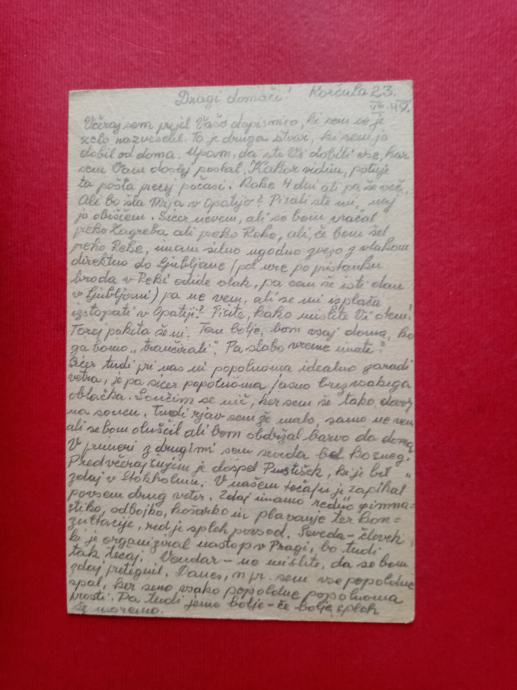 Korčula 23.
Dragi domači! VII. 49.
Včeraj sem prejel Vašo dopisnico, ki sem se je
zelo razveselil. To je druga stvar, ki sem jo
dobil od doma. Upam, da ste Vi dobili vse, kar
sem Vam doslej poslal. Kakor vidim, potuje
ta pošta precej počasi. Kake 4 dni ali pa še več.
Ali bo šta v Opatijo? Pisali ste mi, naj
jo obiščem. Sicer ne vem, ali se bom vračal
preko Zagreba ali preko Reke, ali, če bom šel
preko Reke, imam silno ugodno zvezo z vlakom
direktno do Ljubljane (pol ure po pristanku
broda v Reki odide vlak, pa sem še isti dan
v Ljubljani) pa ne vem, ali se mi izplača
izstopati v Opatiji? Pišite, kako mislite Vi doma!
Torej paketa še ni. Tem bolje, bom vsaj doma, ko
ga bomo „tranšírali“. Pa slabo vreme imate?
Sicer tudi pri nas ni popolnoma idealno zaradi
vetra, je pa sicer popolnoma jasno brez vsakega
oblačka. Sončim se nič, ker sem še tako dovolj
na soncu. Tudi rjav sem že malo, samo ne vem
ali se bom olupil ali bom obdržal barvo do doma.
V primeri z drugimi sem seveda bel
Predvčerajšnjim je dospel ki je bil
zdaj v Stokholmu. V našem tečaju je zapihal
povsem drug veter. Zdaj imamo redno gimna-
stiko, odbojko, košarko in plavanje ter kon-
zultacije, red je sploh povsod. Seveda – človek
ki je organiziral nastop v Pragi, bo tudi
tak tečaj. Vendar – ne mislite, da se bom
zdaj pretegnil. Danes, n pr. sem vse popoldne
spal, ker smo vsako popoldne popolnoma
prosti. Pa tudi jemo bolje – če bolje sploh
še moremo.